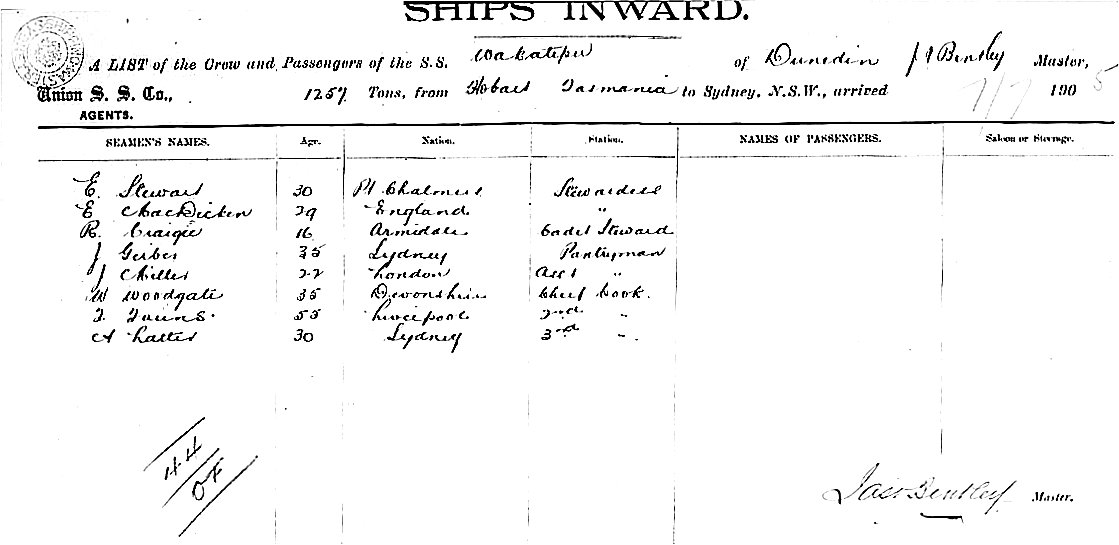 SHIPS INWARD.
A LIST of the Crow and Passengers of the S.S. Wakatipu of Dunedin J A Bentley Master,
Union S. S. Co., 1257 Tons, from Hobart Tasmania to Sydney, N.S.W., arrived 7/7 1905
AGENTS.
SEAMEN'S NAMES. Age. Nation. Station. NAMES OF PASSENGERS. Saloon or Steerage.
E. Stewart 30 Pt Chalmers Stewardess
E MacDicken 29 England "
R. Craigie 16 Armidale Cadet Steward
J Gerber 35 Sydney Pantryman
J Miller 22 London Asst "
W Woodgate 35 Devonshire Chief Cook.
55 Liverpool 2nd "
A 30 Sydney 3rd "
44
Jas Bentley Master.